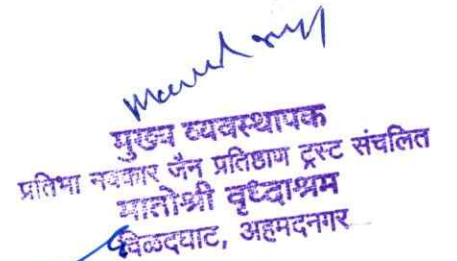 मुख्य व्यवस्थापक
प्रतिभा नवकार जैन प्रतिष्ठाण ट्रस्ट संचलित
मातोश्री वृध्दाश्रम
विळदघाट, अहमदनगर